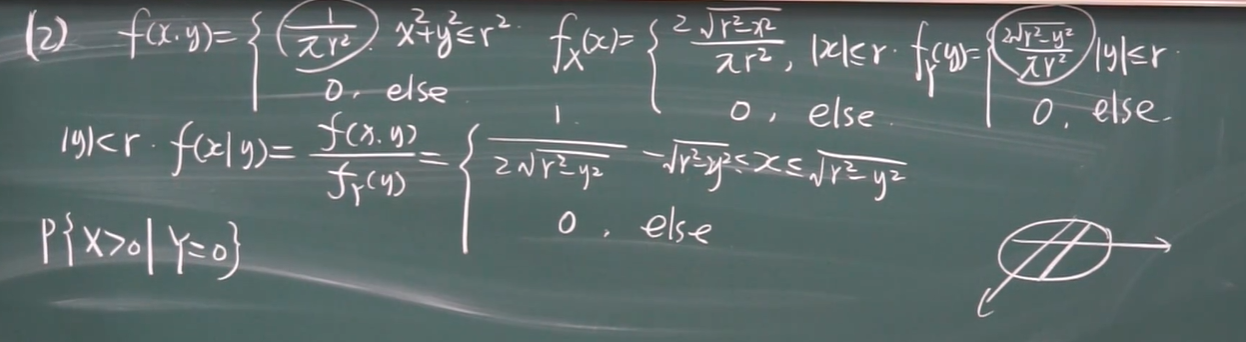 (2) f(x.y)= { 1/πr². x²+y²≤r². 0. else f_X(x)= { 2√(r²-x²)/πr², |x|≤r. 0, else. f_Y(y)= { 2√(r²-y²)/πr² |y|≤r. 0, else.
|y|<r. f(x|y)= f(x.y)/f_Y(y) = { 1/2√(r²-y²) -√(r²-y²)≤x≤√(r²-y²) 0, else
P{X>0|Y=0}